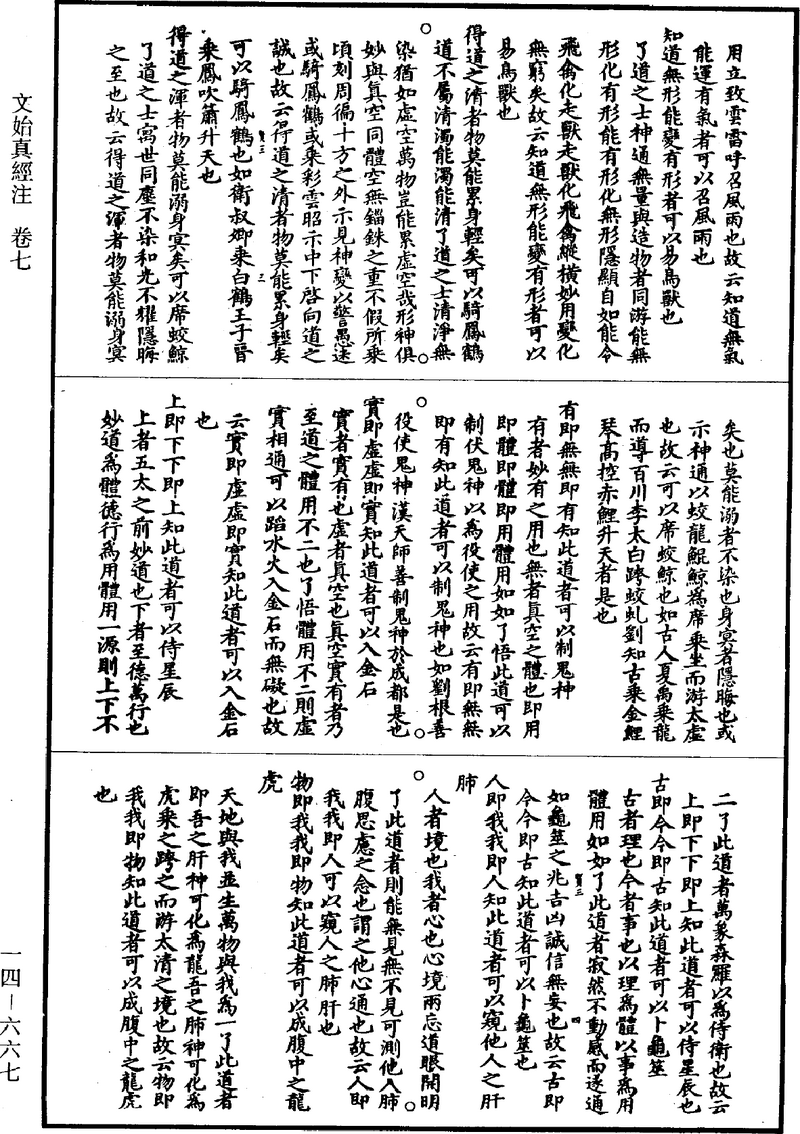 文始真經注　卷七
一四－六六七
用立致雲雷呼召風雨也故云知道無氣
能運有氣者可以召風雨也
知道無形能變有形者可以易鳥獸也
了道之士神通無量與造物者同游能無
形化有形能有形化無形隱顯自如能令
飛禽化走獸走獸化飛禽縱橫妙用變化
無窮矣故云知道無形能變有形者可以
易鳥獸也
得道之清者物莫能累身輕矣可以騎鳳鶴
道不屬清濁能濁能清了道之士清淨無
染猶如虛空萬物豈能累虛空哉形神俱
妙與真空同體空無錙銖之重不假所乘
頃刻周徧十方之外示見神變以警愚迷
或騎鳳鶴或乘彩雲昭示中下啓向道之
誠也故云得道之清者物莫能累身輕矣
可以騎鳳鶴也如衛叔卿乘白鶴王子晉
乘鳳吹簫升天也
得道之渾者物莫能溺身冥矣可以席蛟鯨
了道之士寓世同塵不染和光不耀隱晦
之至也故云得道之渾者物莫能溺身冥
矣也莫能溺者不染也身冥者隱晦也或
示神通以蛟龍鯤鯨為席乘坐而游太虛
也故云可以席蛟鯨也如古人夏禹乘龍
而導百川李太白跨蛟虬劉知古乘金鯉
琴高控赤鯉升天者是也
有即無無即有知此道者可以制鬼神
有者妙有之用也無者真空之體也即用
即體即體即用體用如如了悟此道可以
制伏鬼神以為役使之用故云有即無無
即有知此道者可以制鬼神也如劉根善
役使鬼神漢天師善制鬼神於成都是也
實即虛虛即實知此道者可以入金石
實者實有也虛者真空也真空實有者乃
至道之體用不二也了悟體用不二則虛
實相通可以蹈水火入金石而無礙也故
云實即虛虛即實知此道者可以入金石
也
上即下下即上知此道者可以侍星辰
上者五太之前妙道也下者至德萬行也
妙道為體德行為用體用一源則上下不
二了此道者萬象森羅以為侍衛也故云
上即下下即上知此道者可以侍星辰也
古即今今即古知此道者可以卜龜筮
古者理也今者事也以理為體以事為用
體用如如了此道者寂然不動感而遂通
如龜筮之兆吉凶誠信無妄也故云古即
今今即古知此道者可以卜龜筮也
人即我我即人知此道者可以窺他人之肝
肺
人者境也我者心也心境兩忘道眼開明
了此道者則能無見無不見可測他人肺
腹思慮之念也謂之他心通也故云人即
我我即人可以窺人之肺肝也
物即我我即物知此道者可以成腹中之龍
虎
天地與我並生萬物與我為一了此道者
即吾之肝神可化為龍吾之肺神可化為
虎乘之跨之而游太清之境也故云物即
我我即物知此道者可以成腹中之龍虎
也